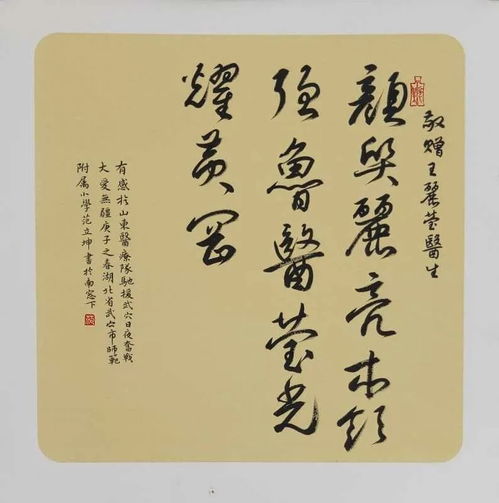 敬贈王麗莹醫生
顏與麗亮本領
强魯醫莹光
耀黄岡
有感扵山東醫療隊馳援武穴日夜奮戰
大愛無疆庚子之春湖北省武穴市師範
附属小學范立坤書扵南窓下